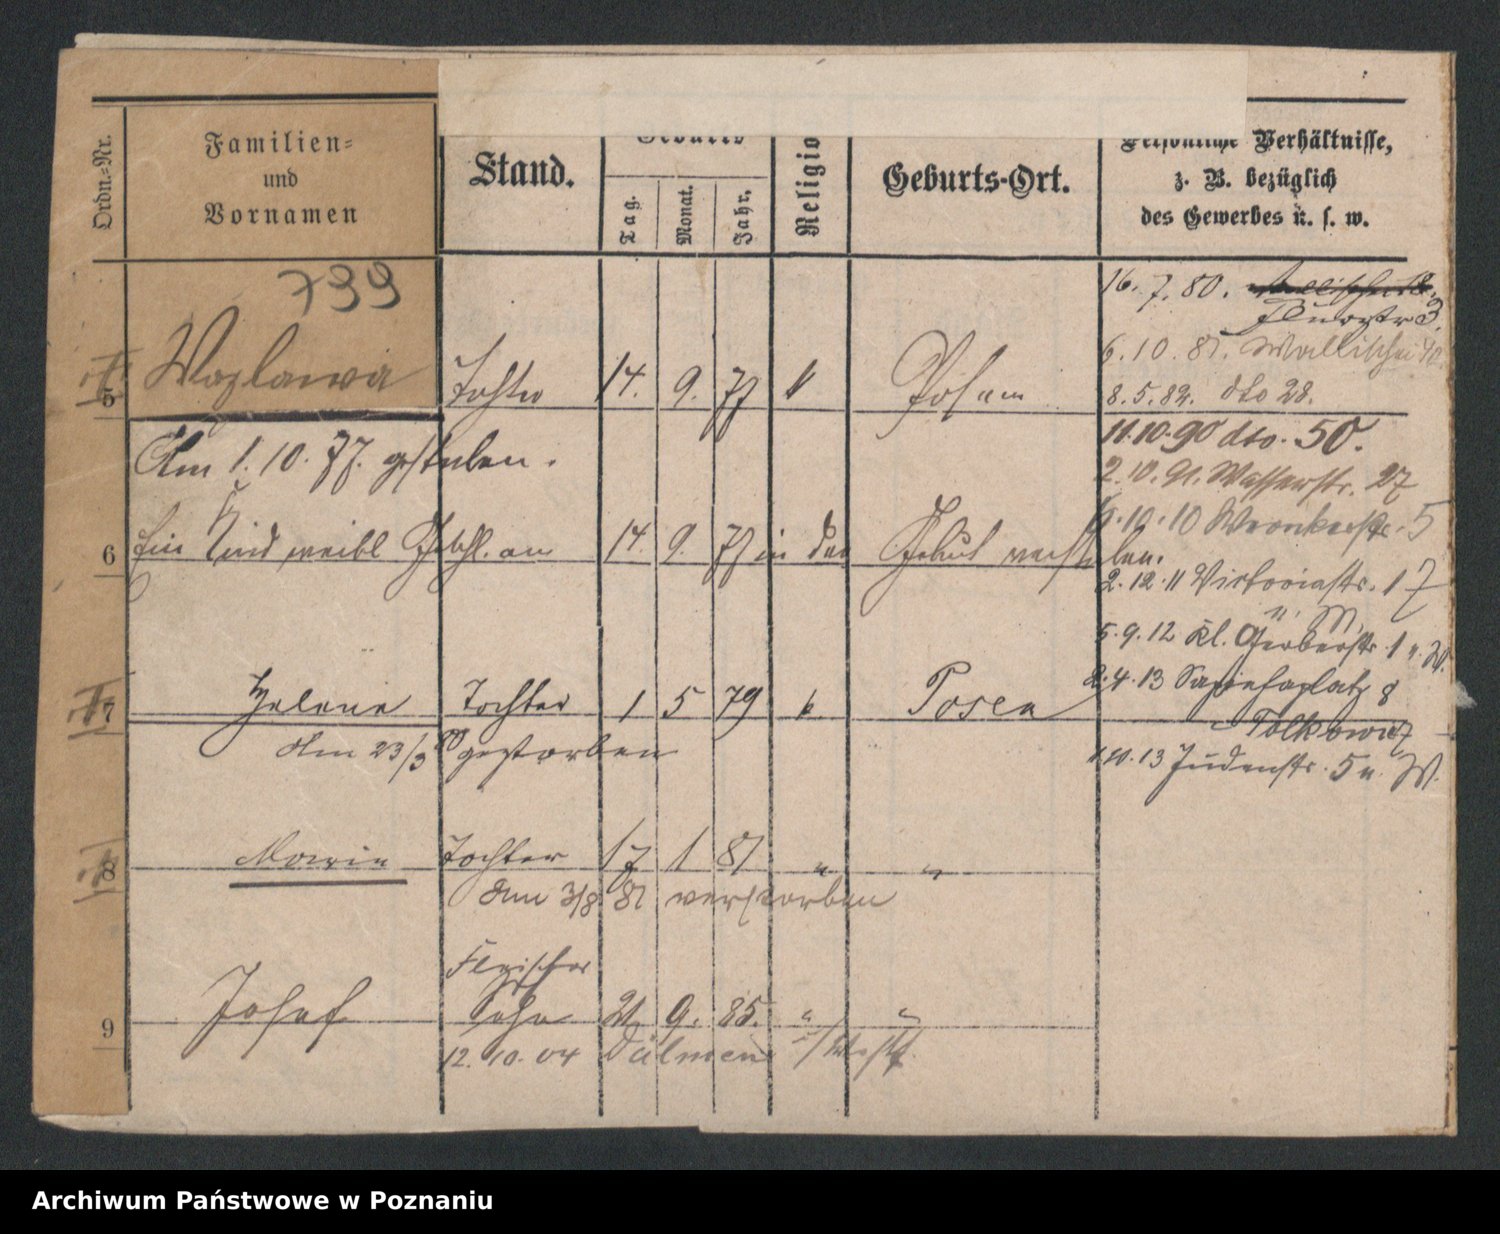 Ordn.-Nr.
Familien-
und
Vornamen
Stand.
Geburts
Tag.
Monat.
Jahr.
Religio
Geburts-Ort.
Persönliche Verhältnisse,
z. B. bezüglich
des Gewerbes u. s. w.
799
5 Wazlawa Tochter 14. 9. 77 k Posen
Am 1. 10. 77. gestorben.
6 Ein Kind weibl Geschl. am 14. 9. 77 in der Geburt verstorben.
7 Helene Tochter 1 5 79 k Posen
Am 23/3 80 gestorben
8 Marie Tochter 17 1 81 " "
Am 3/8 81 verstorben
Fleischer
9 Josef Sohn 21 9. 85. " "
12. 10. 04 Dülmen i/Westf.
16. 7. 80. Wallischei
Flurstr 3.
6. 10. 81. Wallischei
8. 5. 82. dto 28.
11. 10. 90 dto. 50.
2. 10. 91. Wasserstr. 27
6. 10. 10 Wronkerstr. 5
2. 12. 11 Victoriastr. 17
ü. M.
5. 9. 12 kl. Gerberstr. 1 u. W.
2. 4. 13 Sapiehaplatz 8
Tolkowicz
1. 10. 13 Judenstr. 5 u. W.
Archiwum Państwowe w Poznaniu